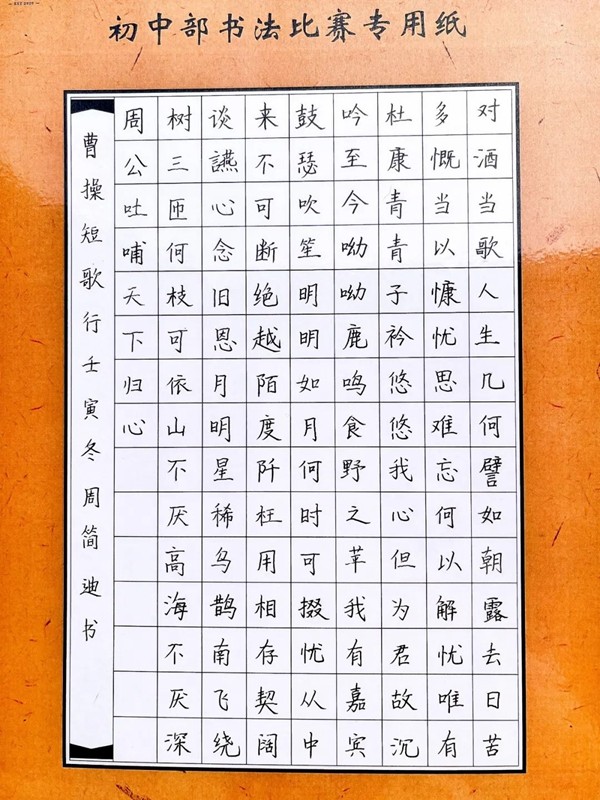 初中部书法比赛专用纸
对酒当歌人生几何譬如朝露去日苦
多慨当以慷忧思难忘何以解忧唯有
杜康青青子衿悠悠我心但为君故沉
吟至今呦呦鹿鸣食野之苹我有嘉宾
鼓瑟吹笙明明如月何时可掇忧从中
来不可断绝越陌度阡枉用相存契阔
谈讌心念旧恩月明星稀乌鹊南飞绕
树三匝何枝可依山不厌高海不厌深
周公吐哺天下归心
曹操短歌行壬寅冬周简迪书